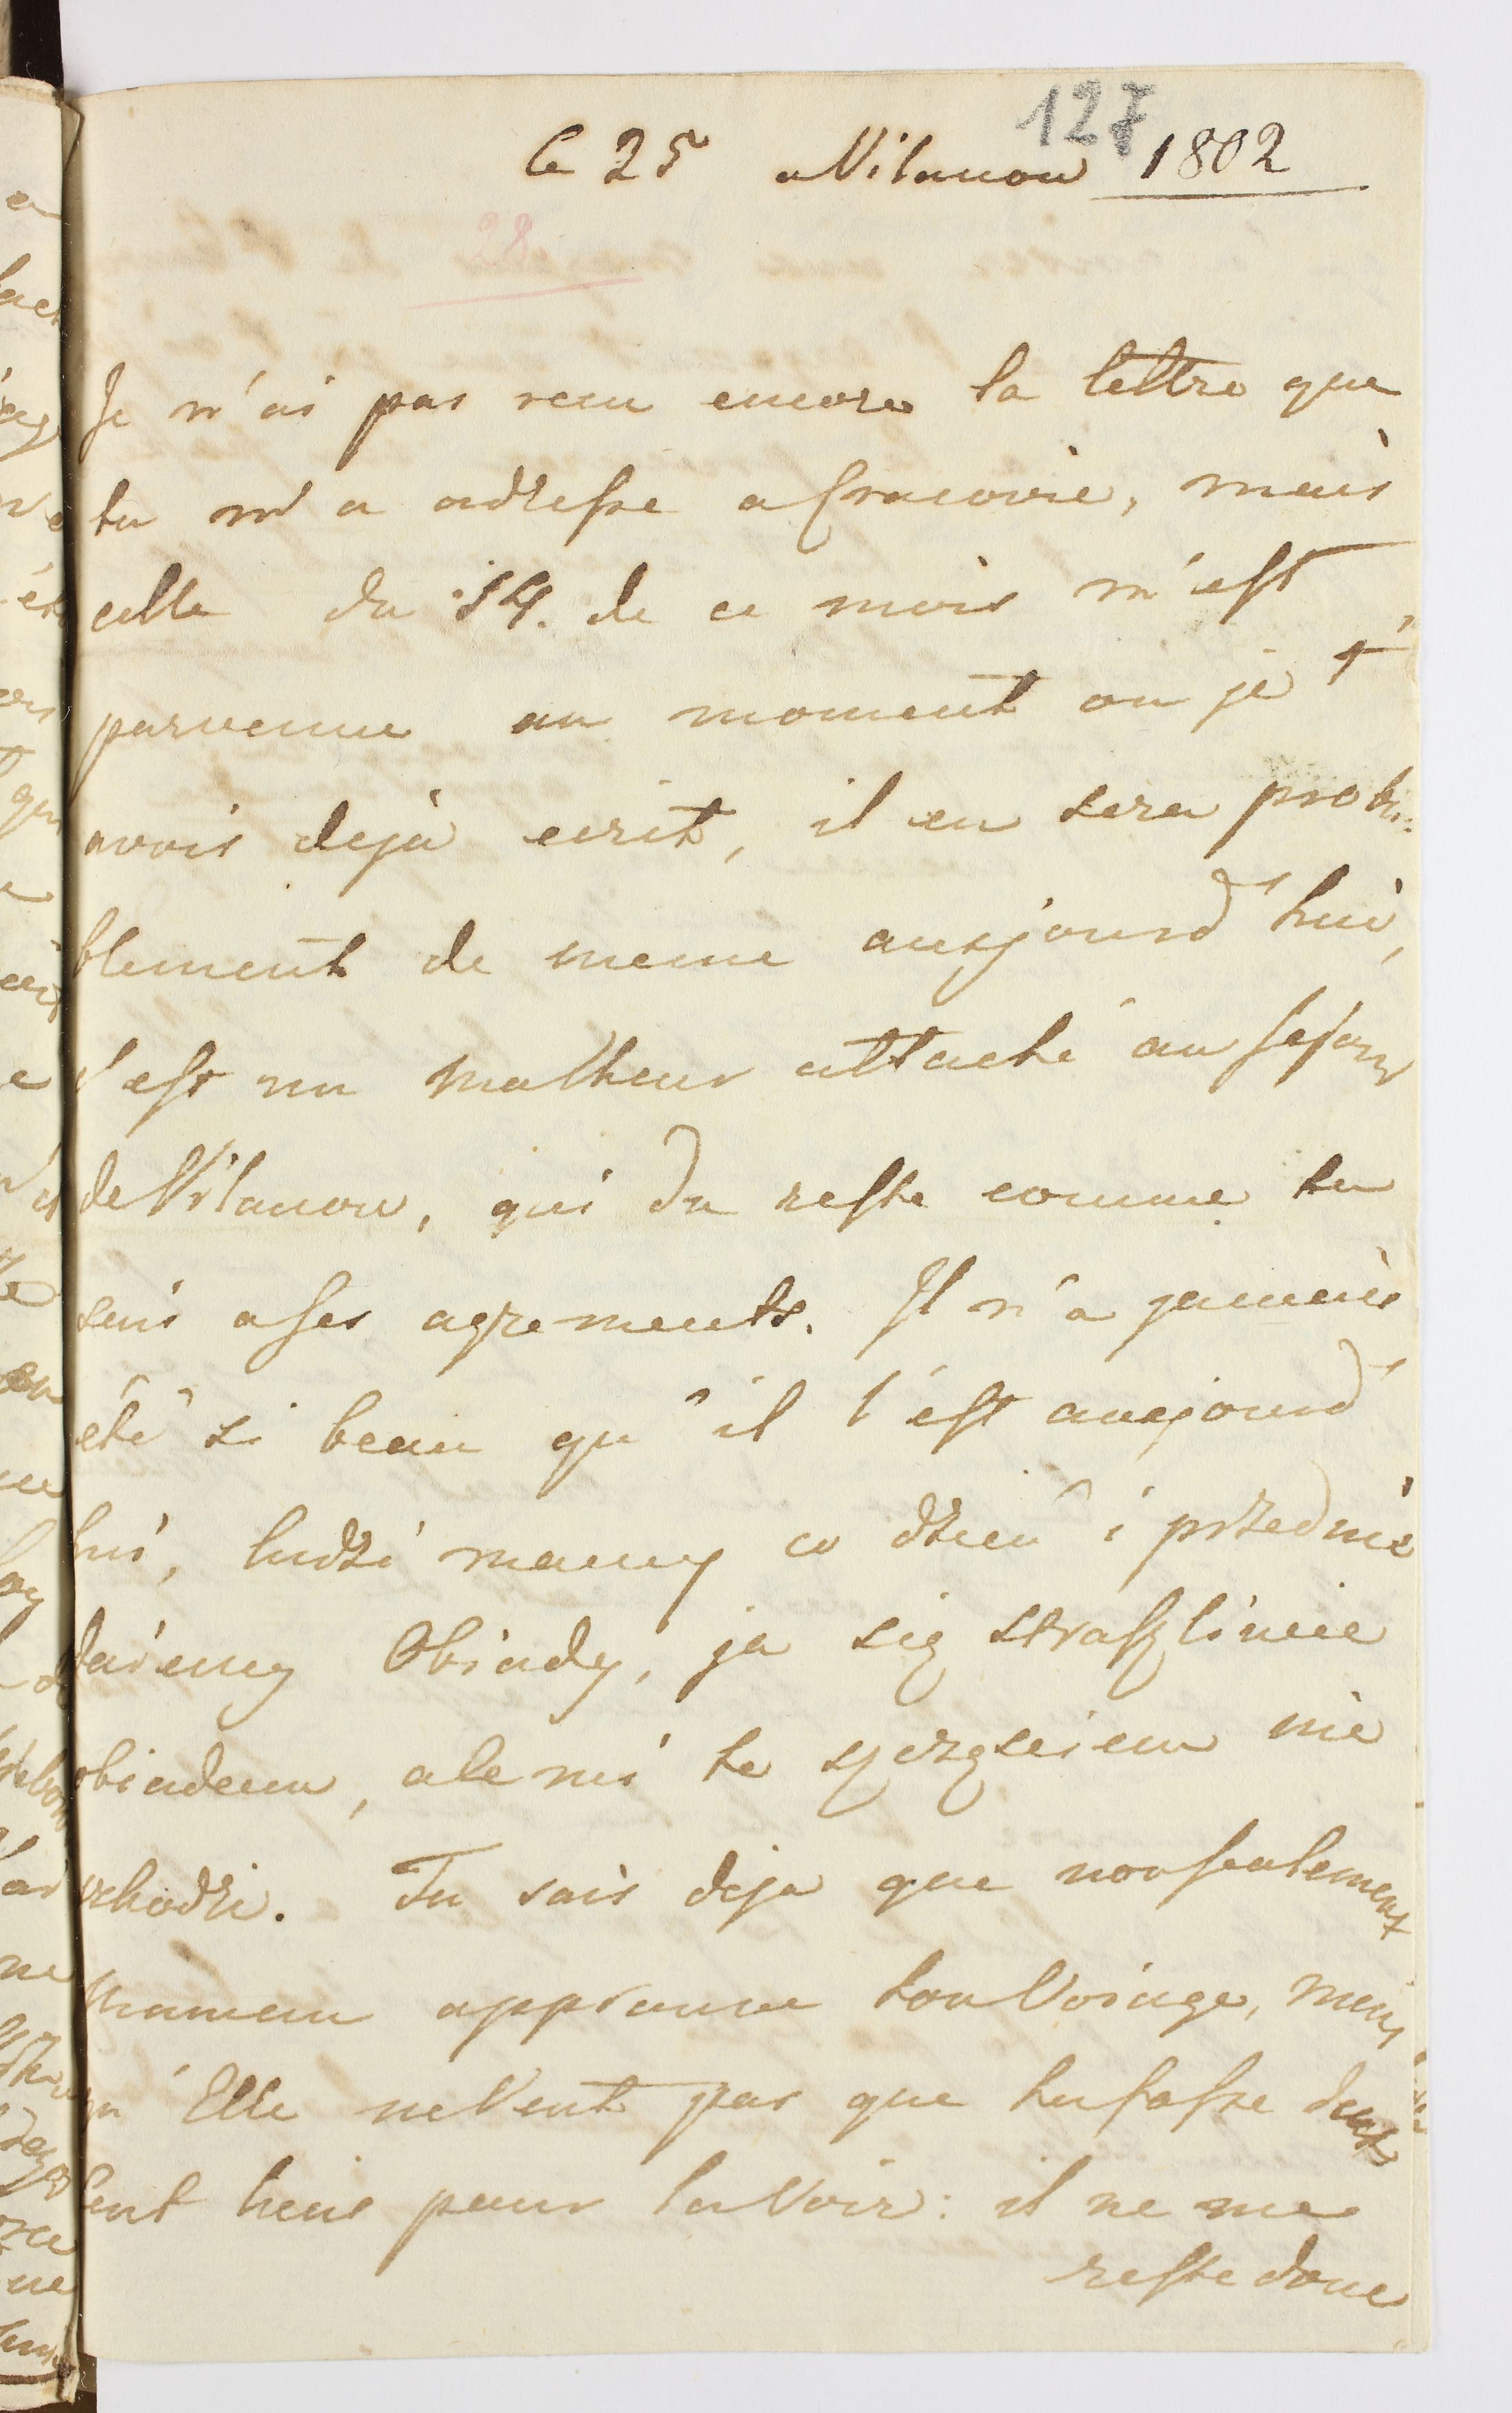 127
le 25 a Vilanow 1802
28
Je n'ai pas recu encore la lettre que
tu m'a adresse a Cracovie, mais
celle du 14. de ce mois m'est
parvenue au moment ou je t'
avois dejà ecrit, il en sera proba:
blement de meme aujourd'hui,
c'est un malheur attaché au sejour
de Vilanow, qui du reste comme tu
sais a ses agrements. Il n'a jamais
eté si beau qu'il l'est aujourd'
hui, ludzi mamy co dzień i przednie
daiemy Obiady, ja się straszliwie
obiadem, ale mi to sczęsciem nie
szkodzi. Tu sais deja que nonseulement
Maman approuve ton Voiage, mais
qu'Elle ne Veut pas que tu fasse deux
Cent lieus pour la Voir: il ne me
reste donc